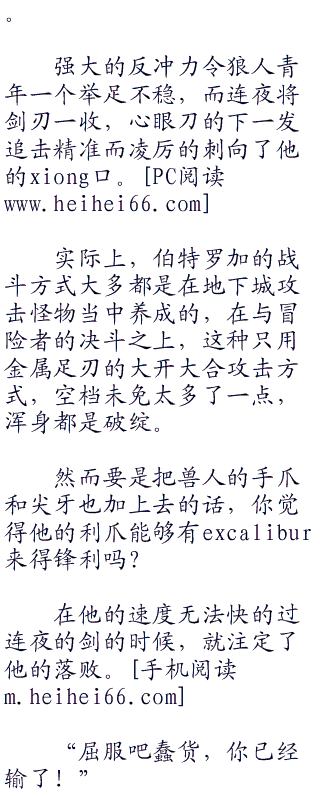 。
强大的反冲力令狼人青
年一个举足不稳，而连夜将
剑刃一收，心眼刀的下一发
追击精准而凌厉的刺向了他
的xiong口。[PC阅读
www.heihei66.com]
实际上，伯特罗加的战
斗方式大多都是在地下城攻
击怪物当中养成的，在与冒
险者的决斗之上，这种只用
金属足刃的大开大合攻击方
式，空档未免太多了一点，
浑身都是破绽。
然而要是把兽人的手爪
和尖牙也加上去的话，你觉
得他的利爪能够有excalibur
来得锋利吗？
在他的速度无法快的过
连夜的剑的时候，就注定了
他的落败。[手机阅读
m.heihei66.com]
“屈服吧蠢货，你已经
输了！”